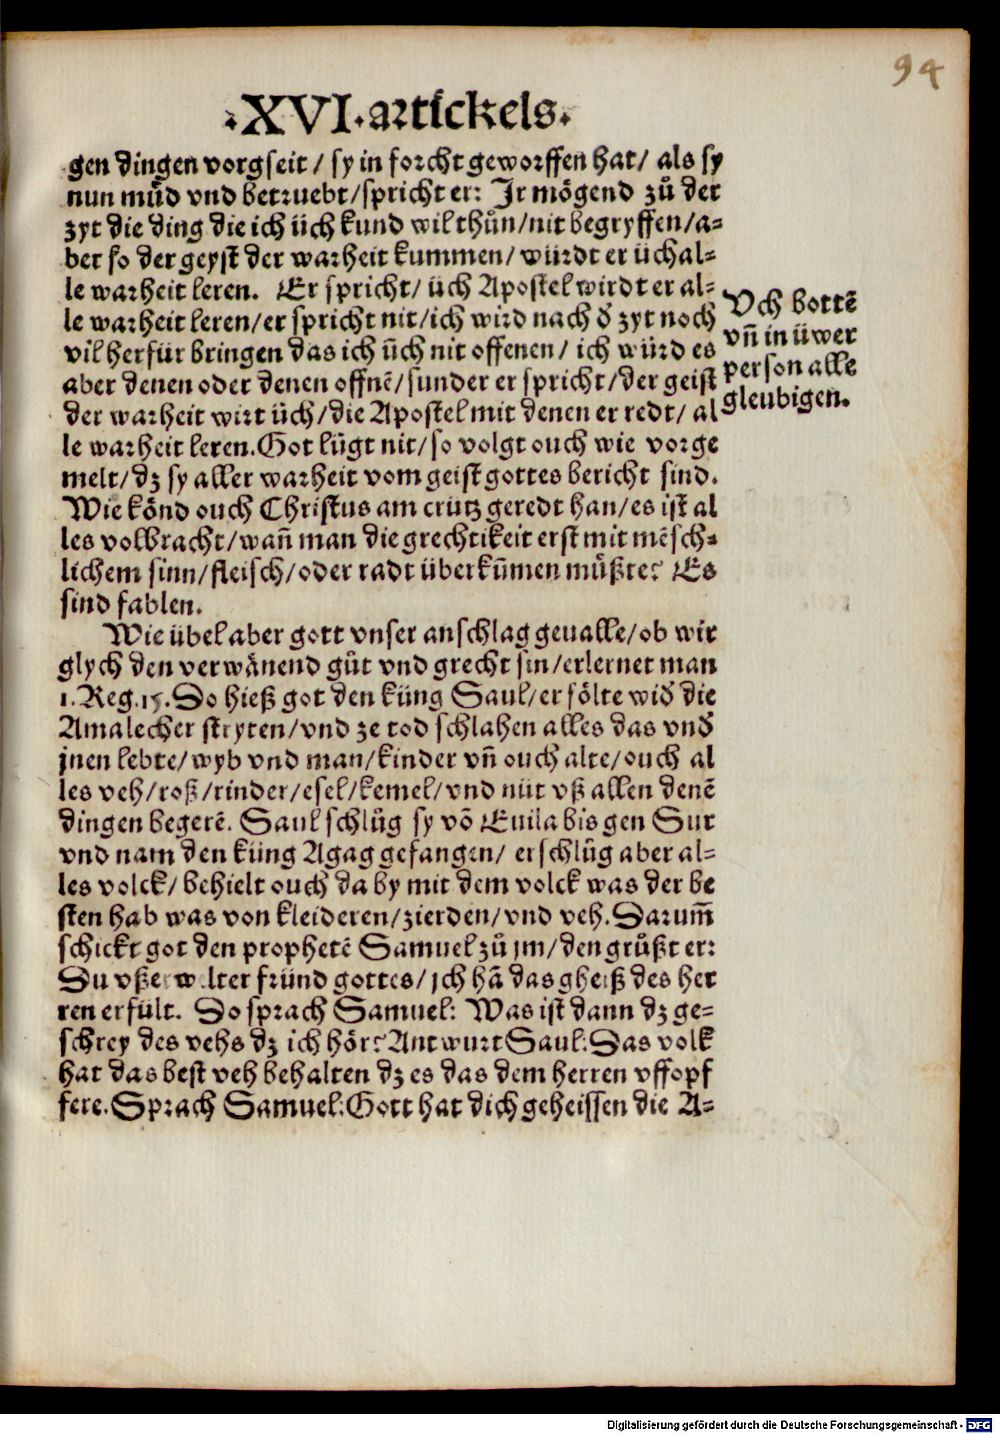 94
.XVI.artickels.
gen dingen vorgseit / sy in forcht geworffen hat / als sy
nun muͤd vnd betruebt/spricht er: Ir moͤgend zuͦ der
zyt die ding die ich üch kund wil thuͦn/nit begryffen/a-
ber so der geyst der warheit kummen/ würdt er üch al-
le warheit leren. Er spricht/ üch Apostel wirdt er al-
le warheit leren/er spricht nit/ich wird nach d̕ zyt noch
vil herfür bringen das ich ūch nit offenen/ ich würd es
aber denen oder denen offnē/sunder er spricht/der geist
der warheit wirt üch/die Apostel mit denen er redt/ al
le warheit leren.Got lügt nit/so volgt ouch wie vorge
melt/dz sy aller warheit vom geist gottes bericht sind.
Wie koͤnd ouch Christus am crütz geredt han/es ist al
les volbracht/wañ man die grechtikeit erst mit mēsch-
lichem sinn/fleisch/oder radt überkūmen muͤßte? Es
sind fablen.
Wie übel aber gott vnser anschlag geualle/ob wir
glych den verwaͤnend guͦt vnd grecht sin/erlernet man
1.Reg.15.Do hieß got den küng Saul/er soͤlte wid̕ die
Amalecher stryten/vnd ze tod schlahen alles das vnd̕
jnen lebte/wyb vnd man/kinder vñ ouch alte/ouch al
les veh/roß/rinder/esel/kemel/vnd nüt vß allen denē
dingen begerē. Saul schluͦg sy vō Euila bis gen Sur
vnd nam den küng Agag gefangen/ er schluͦg aber al-
les volck/ behielt ouch da by mit dem volck was der be
sten hab was von kleideren/zierden/vnd veh.Darum̄
schickt got den prophetē Samuel zuͦ jm/den gruͤßt er:
Du vßerwelter fründ gottes/jch hā das gheiß des her
ren erfült. Do sprach Samuel: Was ist dann dz ge-
schrey des vehs dz ich hoͤr? Antwurt Saul:Das volk
hat das best veh behalten dz es das dem herren vffopf
fere.Sprach Samuel:Gott hat dich geheissen die A-
Vch bottē
vñ in üwer
person alle
gleubigen.
Digitalisierung gefördert durch die Deutsche Forschungsgemeinschaft - DFG